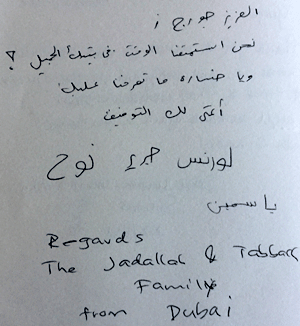 العزيز جورج ;
نحن استمتعنا الوقت في بيتك الجميل ؟
ويا خساره ما تعرفنا عليك
أتمنى لك التوفيق
لورنس جيرى نوح
ياسمين
Regards
The Jadallah & Tabbara
Family
from Dubai